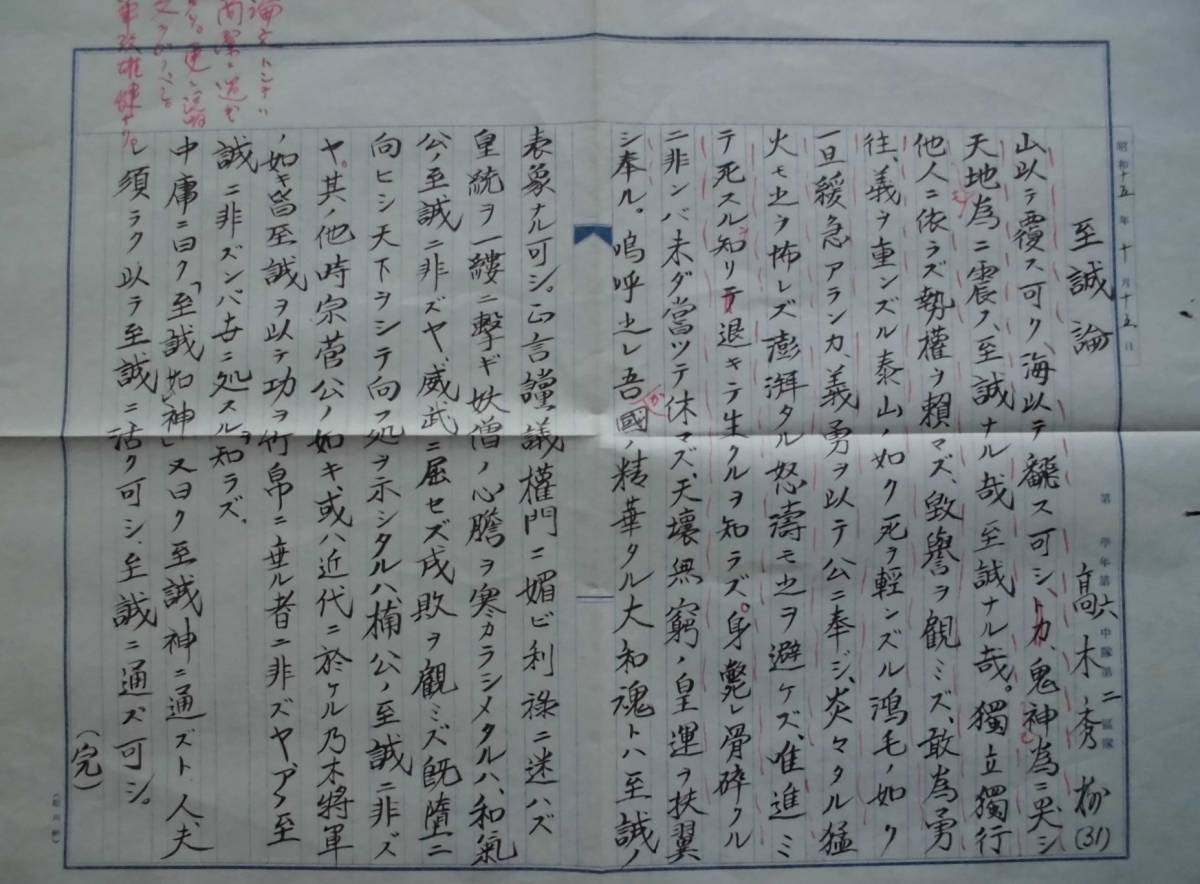 昭和十五年十月十五日
至誠論
第 学年第六中隊第二區隊
髙木秀 (31)
山以テ覆ス可ク、海以テ飜ス可シ、トカ、鬼神為ニ哭シ
天地為ニ震フ、至誠ナル哉至誠ナル哉。獨立獨行
他人ニ依ラズ執權ヲ賴マズ、毀誉ヲ観ミズ、敢為勇
往、義ヲ重ンズル泰山ノ如ク死ヲ輕ンズル鴻毛ノ如ク
一旦緩急アランカ、義勇ヲ以テ公ニ奉ジ、炎々タル猛
火モ之ヲ怖レズ澎湃タル怒濤モ之ヲ避ケズ、唯進ミ
テ死スル知リテ退キテ生クルヲ知ラズ。身斃レ骨碎クル
ニ非ンバ未ダ當ツテ休マズ、天壤無窮ノ皇運ヲ扶翼
シ奉ル。嗚呼之レ吾國ノ精華タル大和魂トハ至誠ノ
表象ナル可シ。正言讜議權門ニ媚ビ利祿ニ迷ハズ
皇統ヲ一縷ニ擊ギ妖僧ノ心膽ヲ寒カラシメタルハ、和氣
公ノ至誠ニ非ズヤ、威武ニ屈セズ成敗ヲ觀ミズ既墮ニ
向ヒシ天下ヲシテ向フ処ヲ示シタルハ、楠公ノ至誠ニ非ズ
ヤ。其ノ他時宗菅公ノ如キ、或ハ近代ニ於ケル乃木將軍
ノ如キ皆至誠ヲ以テ功ヲ竹帛ニ垂ル者ニ非ズヤ、アヽ至
誠ニ非ズンバ安ニ処スルヲ知ラズ、
中庸ニ曰ク「至誠如神」又曰ク至誠神ニ通ズト、人、夫
レ須ラク以テ至誠ニ活ク可シ、至誠ニ通ズ可シ。
(完)